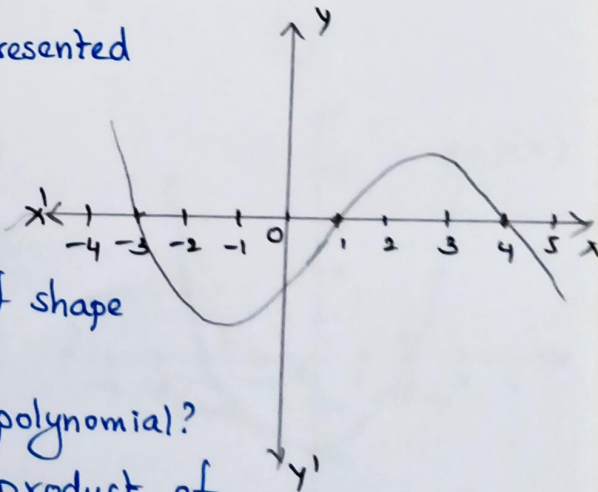 resented
y
x'
-4 -3 -2 -1 0 1 2 3 4 5 x
shape
polynomial?
y'
product of